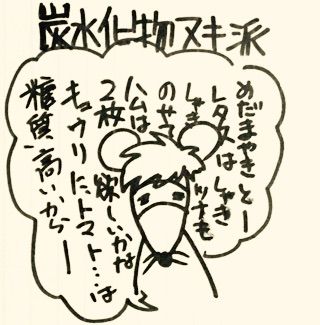 炭水化物ヌキ派
めだまやきとー
レタスはしゃき
しゃきツナも
のせて
ハムは
2枚欲しいかな
キュウリに、トマト…は
糖質、高いからー